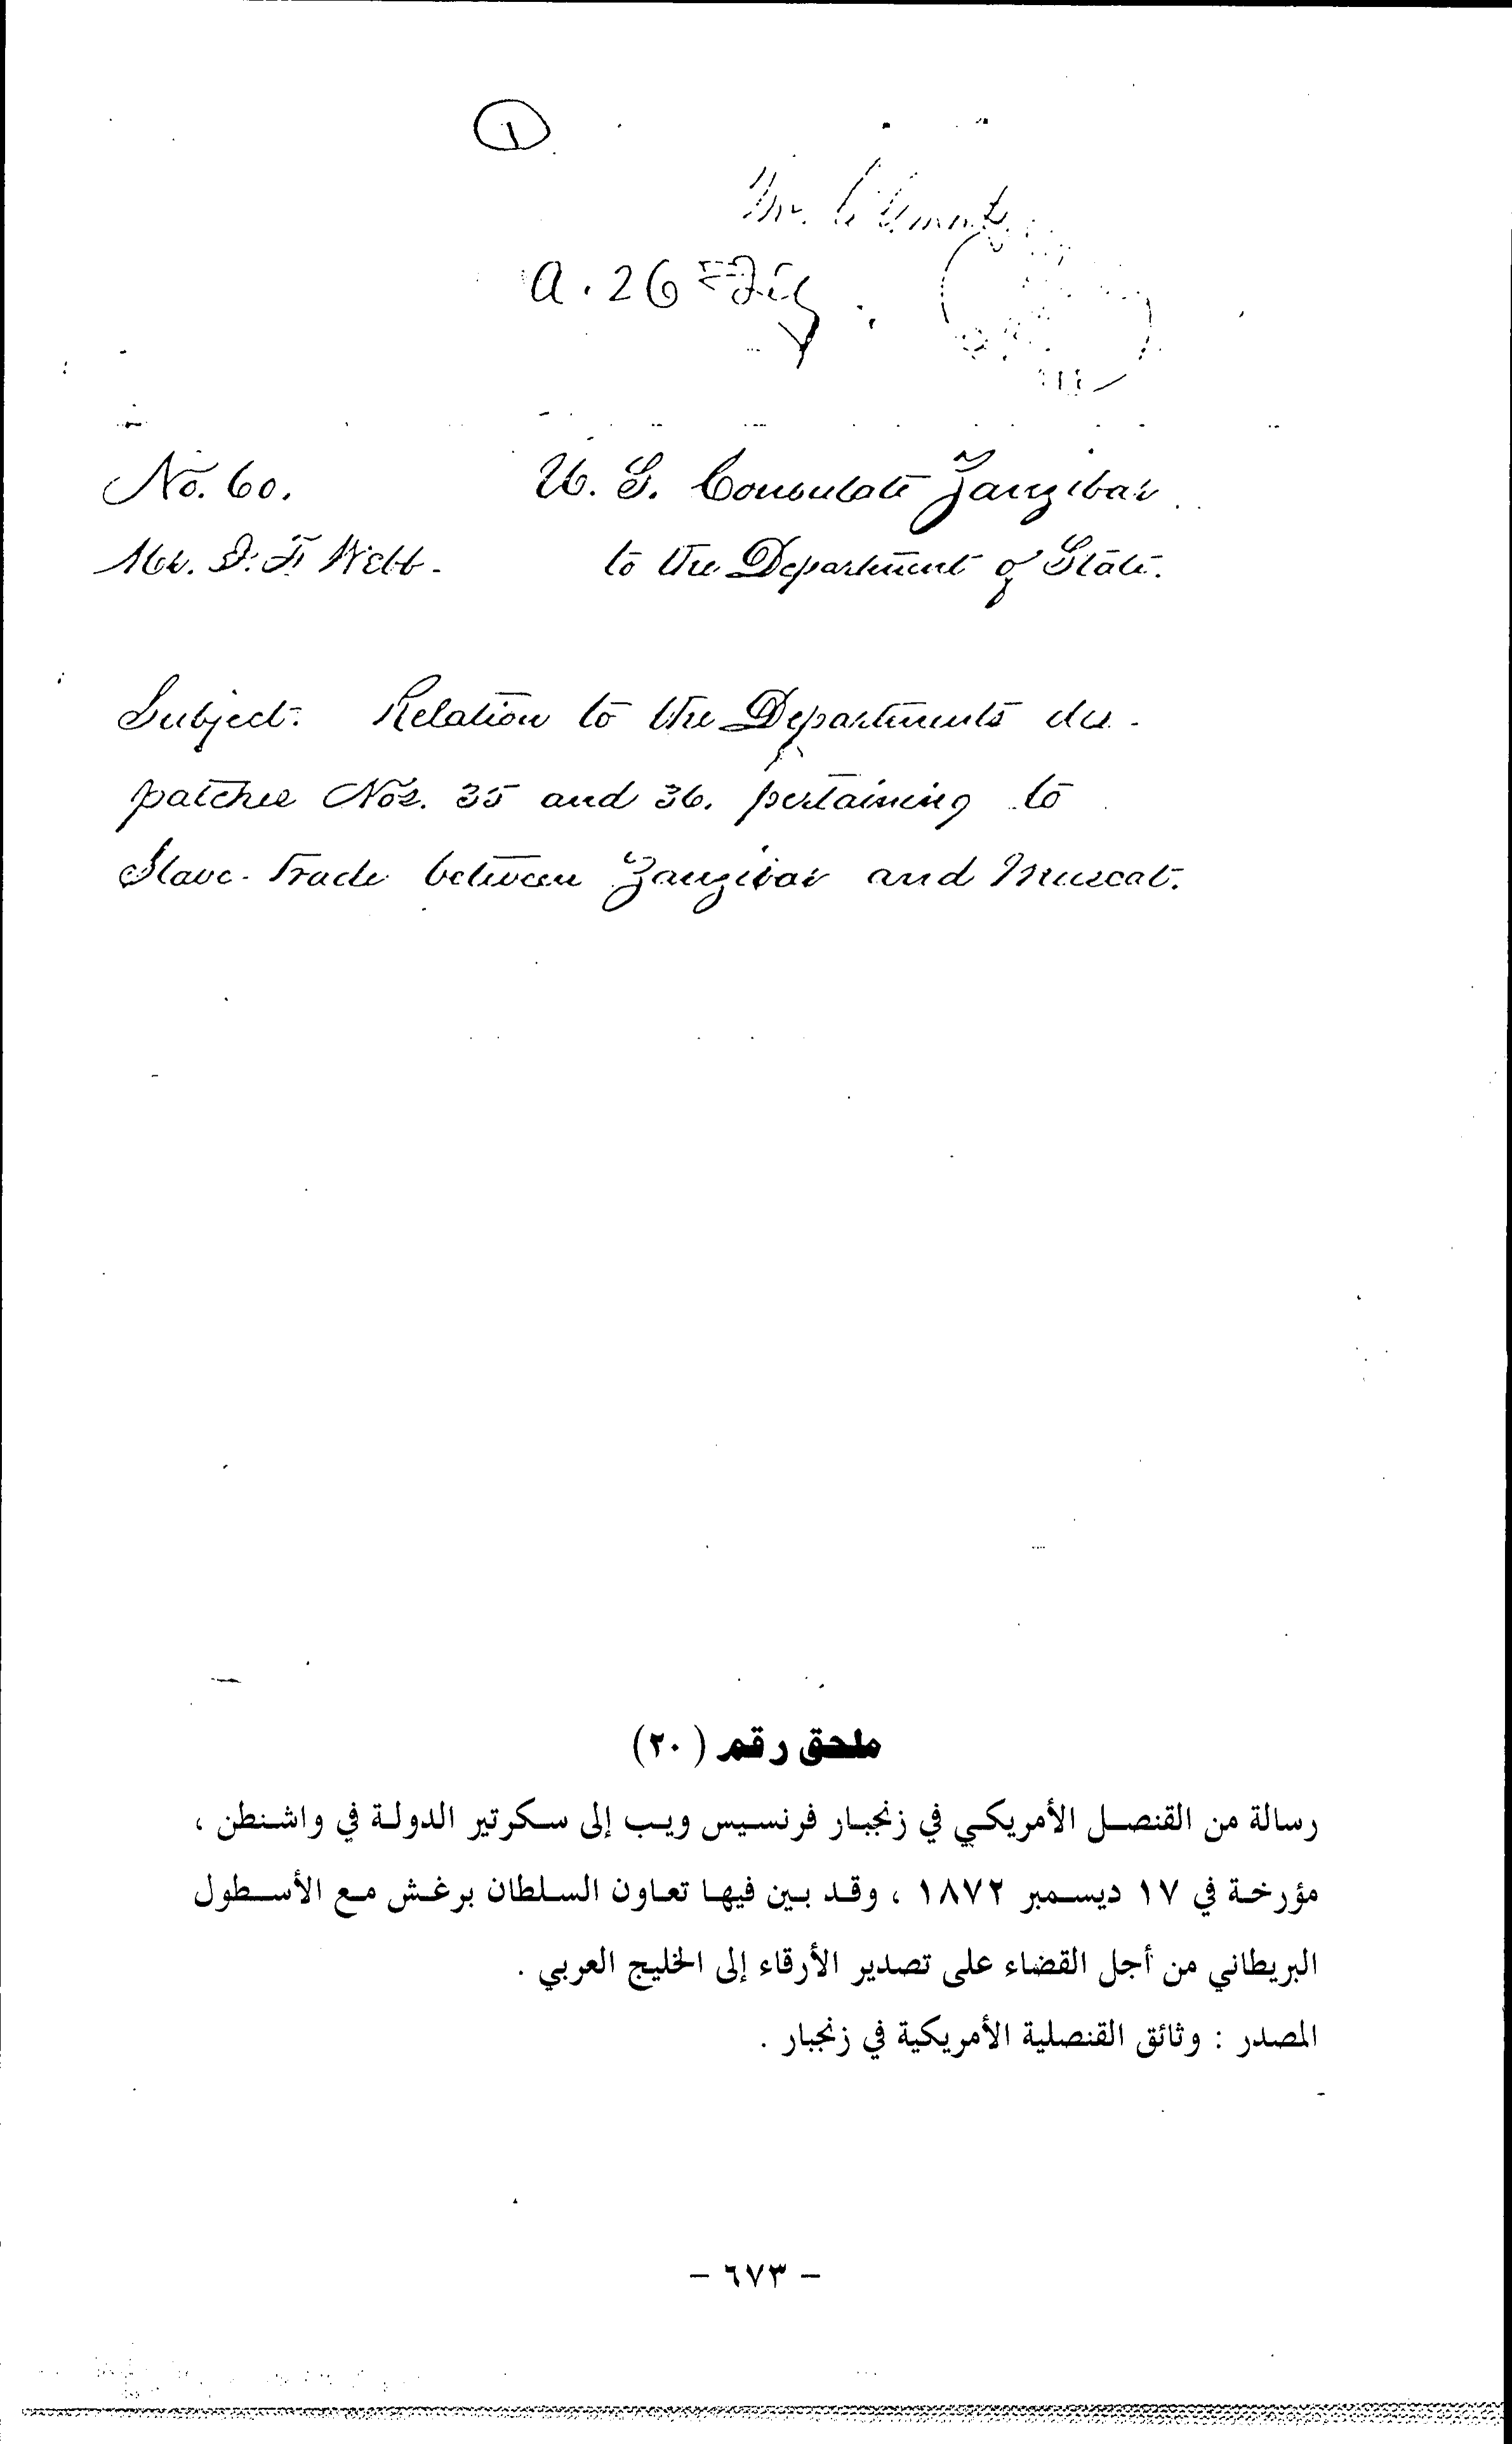 ١
Mr.
a. 26
No. 60. U. S. Consulate Zanzibar
Mr. F. R. Webb. to the Department of State.
Subject: Relation to the Departments des-
patches Nos. 35 and 36. pertaining to
Slave-Trade between Zanzibar and Muscat.
ملحق رقم (٢٠)
رسالة من القنصل الأمريكي في زنجبار فرنسيس ويب إلى سكرتير الدولة في واشنطن ،
مؤرخة في ١٧ ديسمبر ١٨٧٢ ، وقد بين فيها تعاون السلطان برغش مع الأسطول
البريطاني من أجل القضاء على تصدير الأرقاء إلى الخليج العربي .
المصدر : وثائق القنصلية الأمريكية في زنجبار .
- ٦٧٣ -